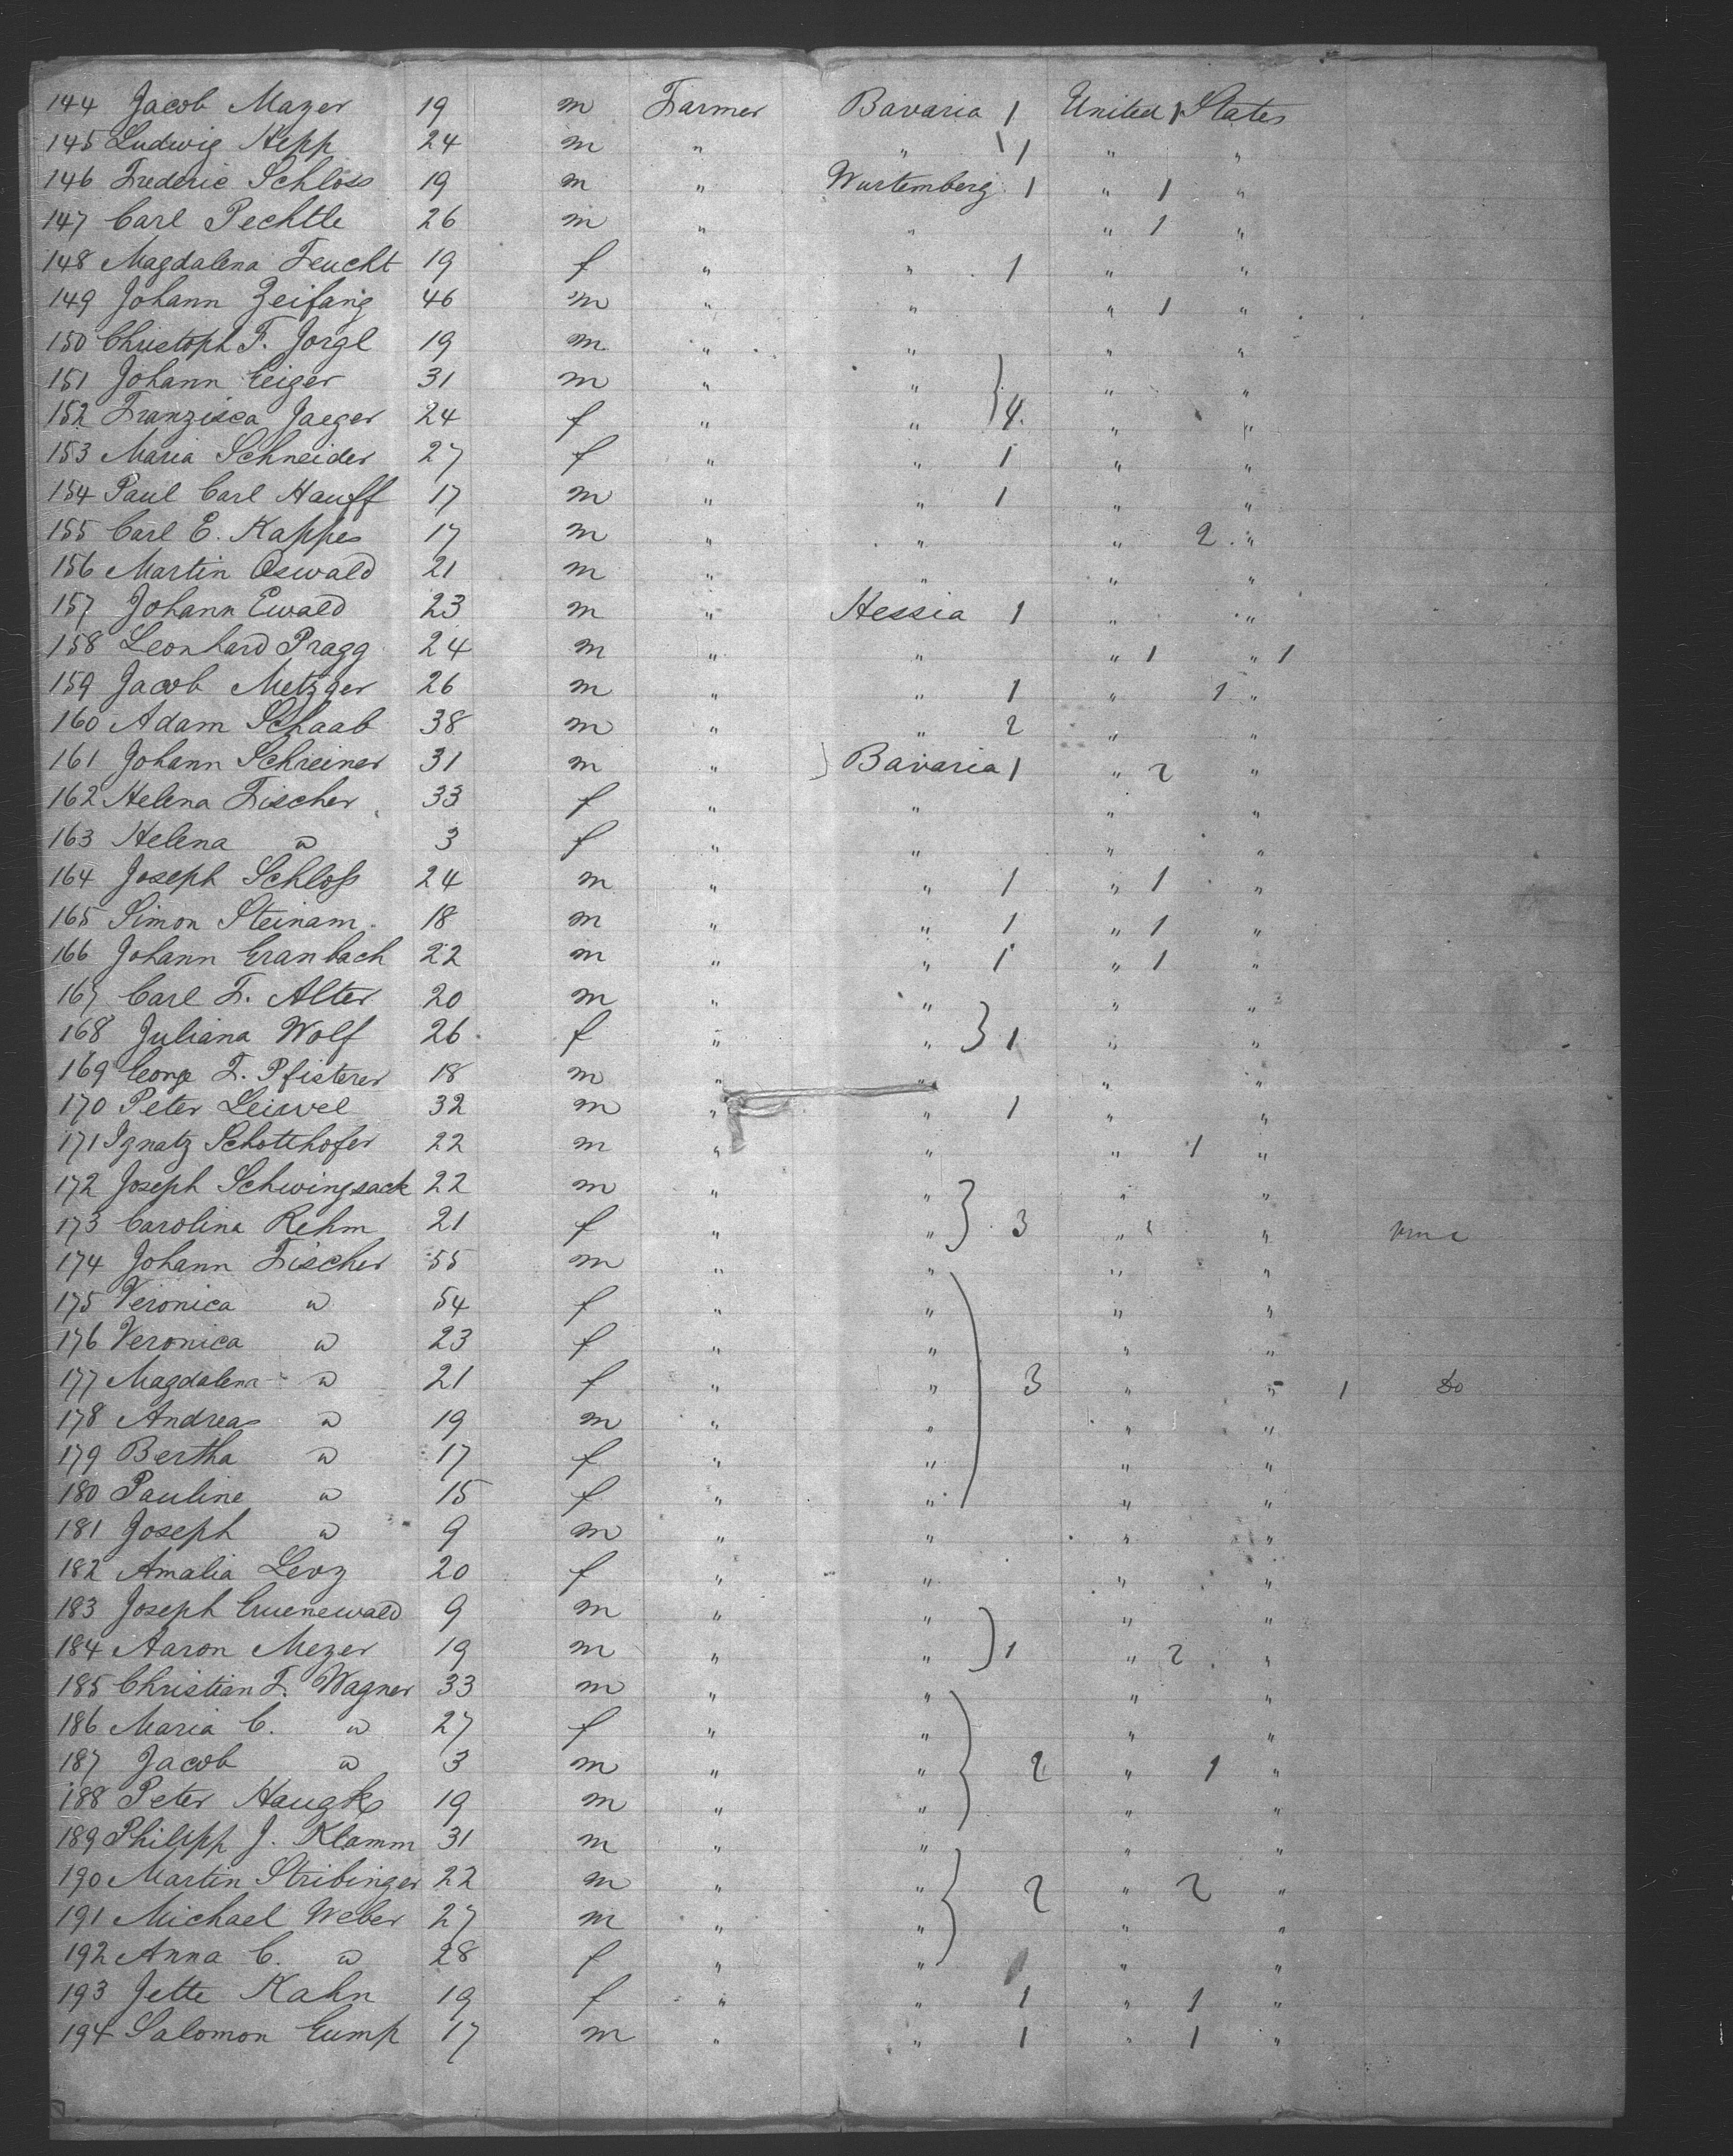 144 Jacob Mayer 19 m Farmer Bavaria 1 United 1 States
145 Ludwig Hepp 24 m " " \ 1 " "
146 Frederic Schloss 19 m " Wurtemberg 1 " 1 "
147 Carl Pechtle 26 m " " " 1 "
148 Magdalena Feucht 19 f " " 1 " "
149 Johann Zeifang 46 m " " " 1 "
150 Christoph F. Jorgl 19 m " " " "
151 Johann Geiger 31 m " " " "
152 Franzisca Jaeger 24 f " " } 4 " "
153 Maria Schneider 27 f " " 1 " "
154 Paul Carl Hauff 17 m " " 1 " "
155 Carl E. Kappes 17 m " " " 2 "
156 Martin Oswald 21 m " " " "
157 Johann Ewald 23 m " Hessia 1 " "
158 Leonhard Pragg 24 m " " " 1 " 1
159 Jacob Metzger 26 m " " 1 " 1 "
160 Adam Schaab 38 m " " 2 " "
161 Johann Schreiner 31 m " } Bavaria 1 " 2 "
162 Helena Fischer 33 f " " " "
163 Helena " 3 f " " " "
164 Joseph Schloß 24 m " " 1 " 1 "
165 Simon Steinam 18 m " " 1 " 1 "
166 Johann Granbach 22 m " " 1 " 1 "
167 Carl F. Alter 20 m " " " "
168 Juliana Wolf 26 f " " } 1 " "
169 George F. Pfisterer 18 m " " " "
170 Peter Leiwel 32 m " " 1 " "
171 Ignatz Schotthofer 22 m " " " 1 "
172 Joseph Schwingsack 22 m " " " "
173 Carolina Rehm 21 f " " } 3 " "
174 Johann Fischer 55 m " " " "
175 Veronica " 54 f " " " "
176 Veronica " 23 f " " " "
177 Magdalena " 21 f " " } 3 " " 1 Do
178 Andreas " 19 m " " " "
179 Bertha " 17 f " " " "
180 Pauline " 15 f " " " "
181 Joseph " 9 m " " " "
182 Amalia Levz 20 f " " " "
183 Joseph Gruenewald 9 m " " " "
184 Aaron Mezer 19 m " " } 1 " 2 "
185 Christian F. Wagner 33 m " " " "
186 Maria C. " 27 f " " " "
187 Jacob " 3 m " " } 2 " 1 "
188 Peter Haugk 19 m " " " "
189 Philipp J. Klamm 31 m " " " "
190 Martin Stribinger 22 m " " } 2 " 2 "
191 Michael Weber 27 m " " " "
192 Anna C. " 28 f " " " "
193 Jette Kahn 19 f " " 1 " 1 "
194 Salomon Gump 17 m " " 1 " 1 "